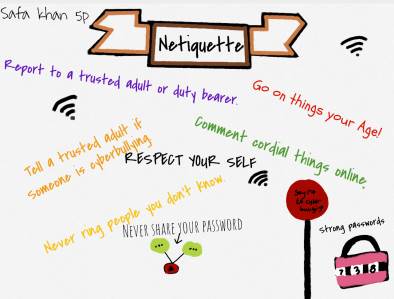 Safa Khan 5P
Netiquette
Report to a trusted adult or duty bearer.
Go on things your Age!
Tell a trusted adult if
someone is cyberbullying
Comment cordial things online.
RESPECT YOUR SELF
Never ring people you don't know.
NEVER SHARE YOUR PASSWORD
Say no
to cyber
strong passwords
7 3 8